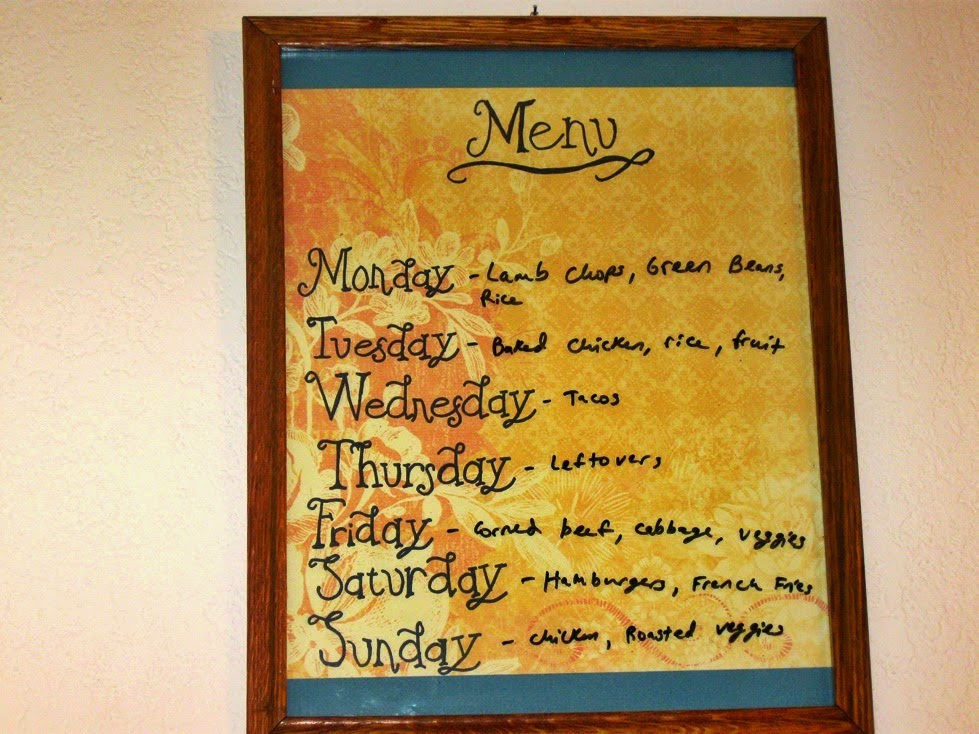 Menu
Monday - Lamb Chops, Green Beans,
Rice
Tuesday - Baked chicken, rice, fruit
Wednesday - Tacos
Thursday - Leftovers
Friday - Corned beef, cabbage, veggies
Saturday - Hamburgers, French Fries
Sunday - chicken, Roasted veggies